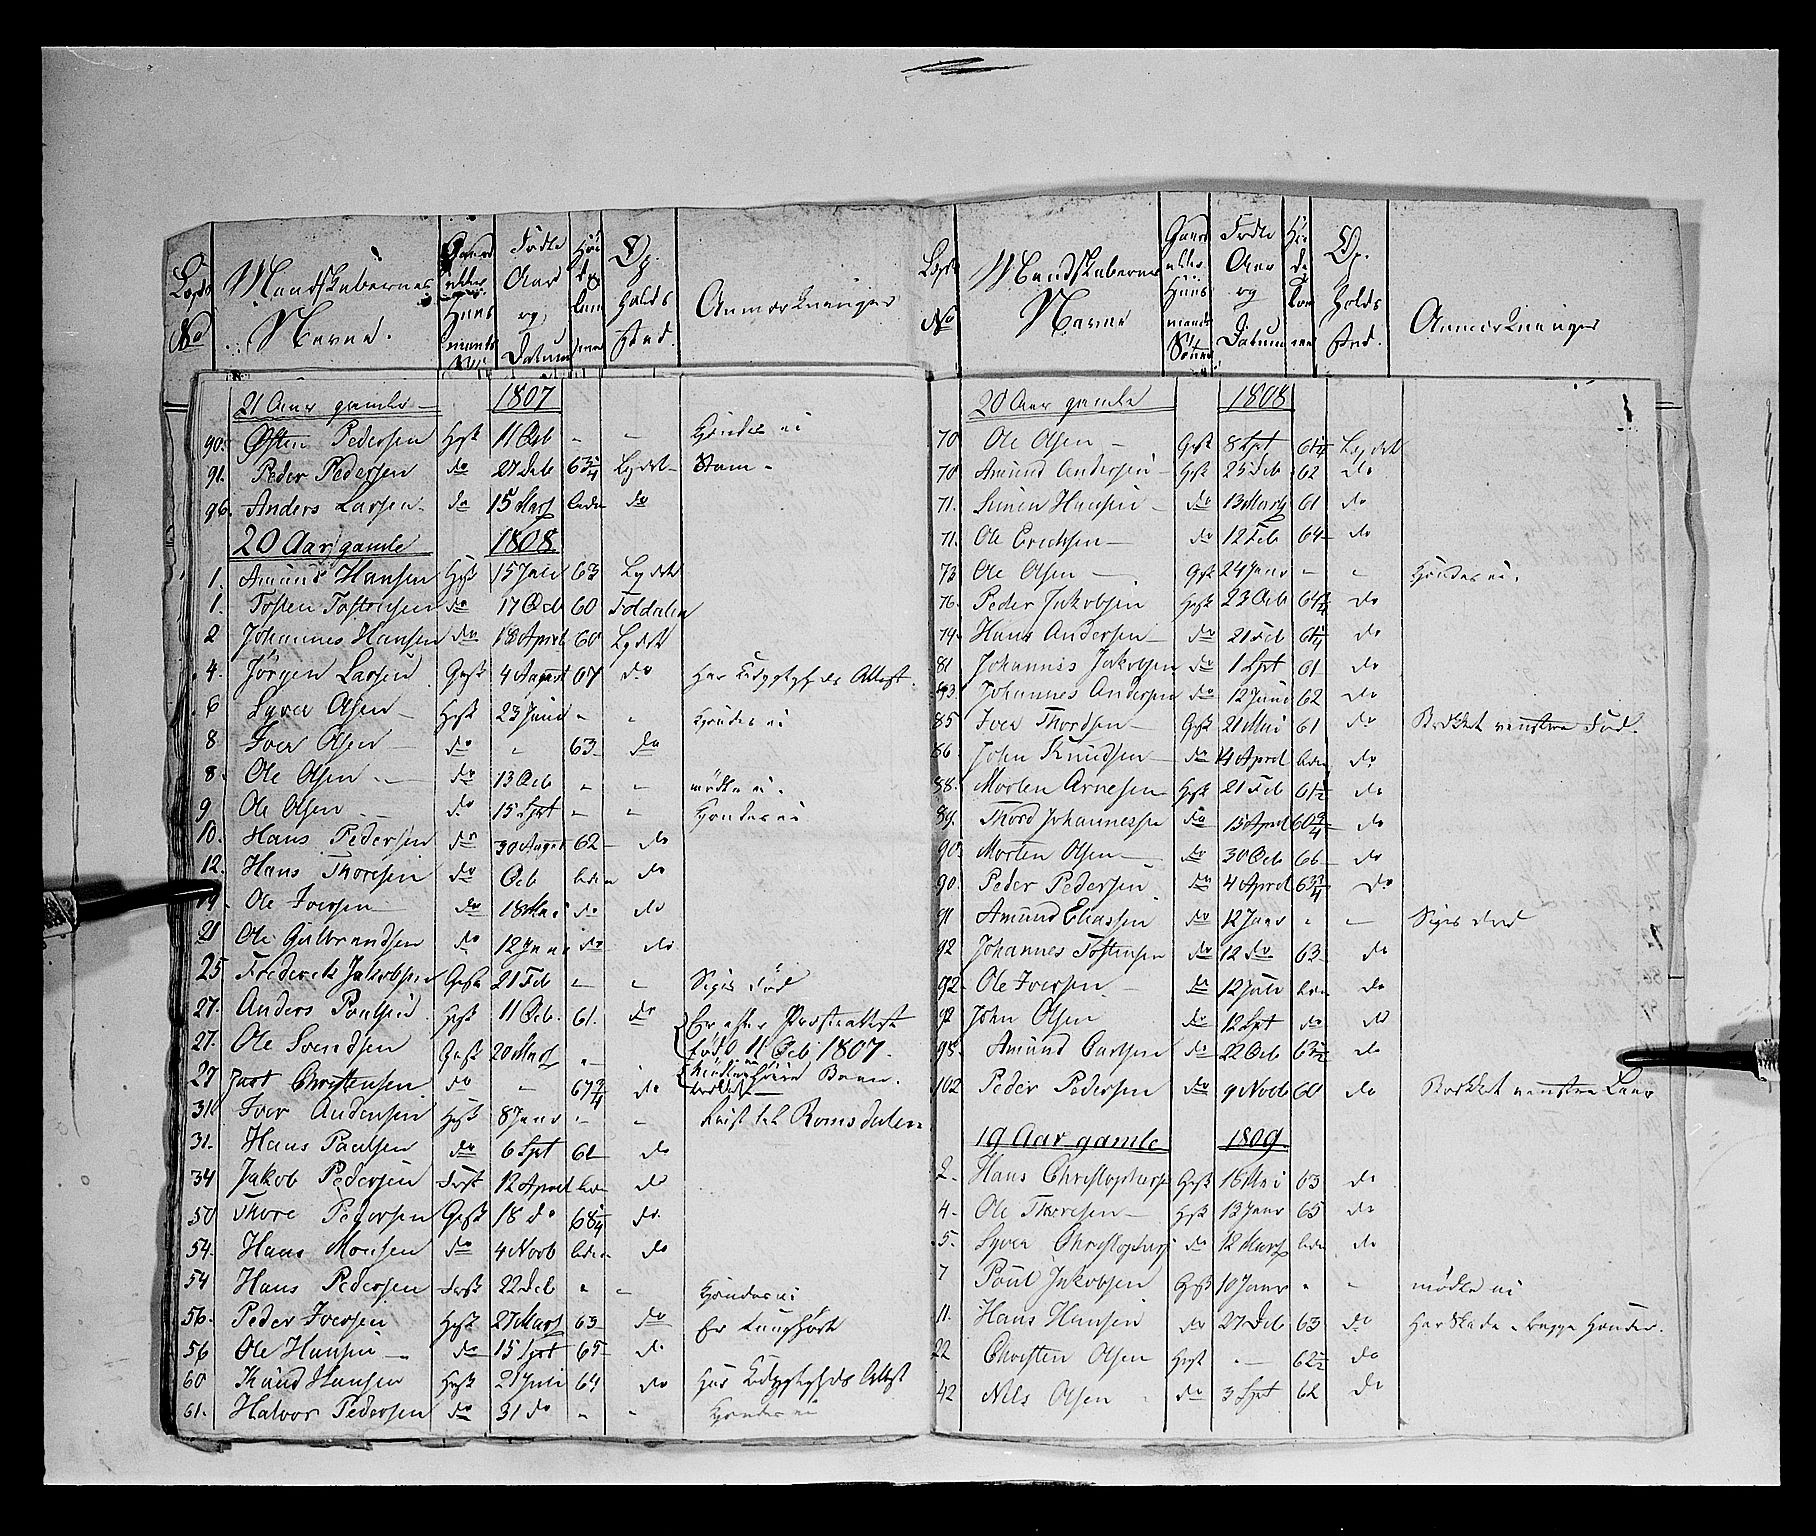 Mandskabernes Navne.
Födte Aar og Datum
Op holds sted.
Anmærkninger
21 Aar gamle — 1807
90. Østen Pedersen Hgst 11 Octb - - Kjendes ei
91. Peder Pedersen do 27 Deb 63 3/4 Lydet
96. Anders Larsen do 15 Marz do
20 Aar gamle 1808
1. Amund Hansen Hgst 15 Juli 63 Lydet
1. Tosten Tostensen do 17 Octb 60 Foldalen
2 Johannes Hansen do 18 April 60 Lydet
4. Jörgen Larsen Ggst 4 August 67 do Har Attest.
6 Syver Olsen Hgst 23 Juni - - Kjendes ei
8 Iver Olsen do - 63 do
8. Ole Olsen do 13 Octb - - mödte ei.
9 Ole Olsen do 15 Sept - - Kjendes ei
10. Hans Pedersen do 30 August 62 do
12. Hans Thoresen do Octb do
19. Ole Iversen do 18 Mai do do
21 Ole Gulbrandsen do 12 Janu do do
25 Frederik Jakobsen Ggst 21 Feb - - Siges död
27. Anders Poulsen Hgst 11 Octb 61. do Er efter Præsteattest född 11 Octb 1807.
27. Ole Svendsen Ggst 20 Marz -
27 Just Christensen do - 67 3/4 do Been.
31. Iver Andersen Hgst 8 Janu - - Reist til Romsdalen
31. Hans Paulsen do 6 Sept 62 do
34 Jakob Pedersen 12 April do
50 Thore Pedersen Ggst 18 do 68 1/4 do.
54. Hans Monsen do 4 Novb do
54 Hans Pedersen 22 Deb - - Kjendes ei
56. Peder Iversen Hgst 27 Marz 63 do Er
56 Ole Hansen do 15 Sept 65 do
60 Knud Hansen Hgst 21 Juli 64 do Har Attest
61. Halvor Pedersen do 31 do - - Kjendes ei
Mandskabernes Navne
Födte Aar og Datum
Op holds sted.
Anmærkninger
20 Aar gamle 1808
70. Ole Olsen Ggst 8 Sept 61 1/4 Lydet
70 Amund Andersen Hgst 25 Feb 62 do
71. Simen Hansen do 13 Marz 61 do
71. Ole Erichsen do 12 Feb 64 do
73 Ole Olsen Ggst 24 Janu - - Kjendes ei.
76. Peder Jakobsen Hgst 23 Octb 64 3/4 do
79. Hans Andersen do 21 Feb 61 1/4 do
81 Johannes Jakobsen do 1 Sept 61 do
83. Johannes Andersen do 12 Juni 62 do
85 Iver Thordsen Ggst 21 Mai 61 do Brækket venstre Fod.
86 John Knudsen do 14 April do
88. Morten Arnesen Hgst 21 Feb 61 1/2 do
89. Thord Johannessen do 15 April 60 3/4 do
90. Morten Olsen do 30 Octb 66 do
90. Peder Pedersen do 4 April 63 3/4 do
91 Amund Eliassen do 12 Janu - - Siges död
92 Johannes Tostensen do 12 do 63 do
92. Ole Iversen do 12 Juli do
92 John Olsen do 12 Sept do do
95. Amund Carlsen do 22 Octb 63 1/2 do
102 Peder Pedersen do 9 Novb 60 do Brækket venstre Laar
19 Aar gamle 1809
2. Hans Christophers Hgst 16 Mai 63 do
4. Ole Thoresen Hgst 13 Janu 65 do
5. Syver Christophers do 12 Marz do
7 Poul Jakobsen Hgst 10 Janu - - mödte ei
11. Hans Hansen do 27 Deb 63 do Har Skade i begge Hænder.
22 Christen Olsen Hgst - 62 1/2 do
42 Nils Olsen do 3 Sept 62 do